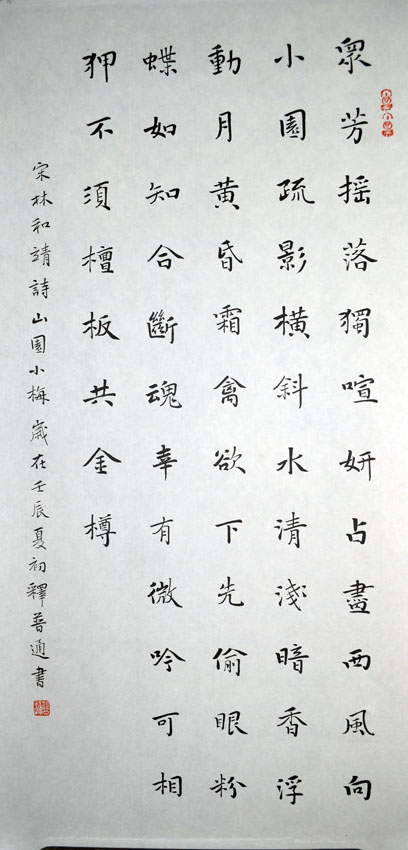 眾芳摇落獨喧妍占盡西風向
小園疏影橫斜水清淺暗香浮
動月黃昏霜禽欲下先偷眼粉
蝶如知合斷魂幸有微吟可相
狎不須檀板共金樽
宋林和靖詩山園小梅歲在壬辰夏初釋普通書